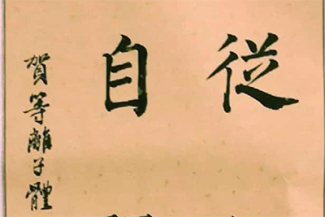 従自
賀等離子體